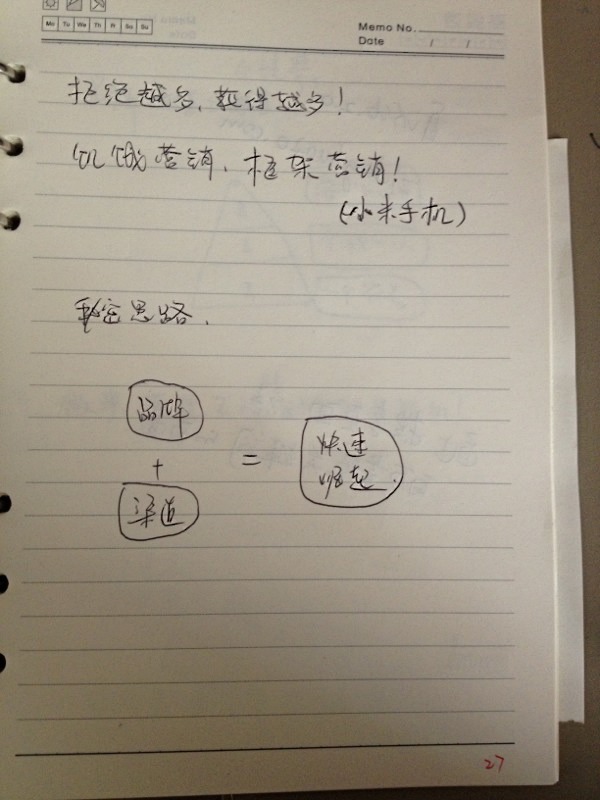 Mo Tu We Th Fr Sa Su
Memo No.
Date / /
拒绝越多,获得越多!
饥饿营销,框架营销!
(小米手机)
秘密思路.
品牌
+
渠道
=
快速
崛起.
27